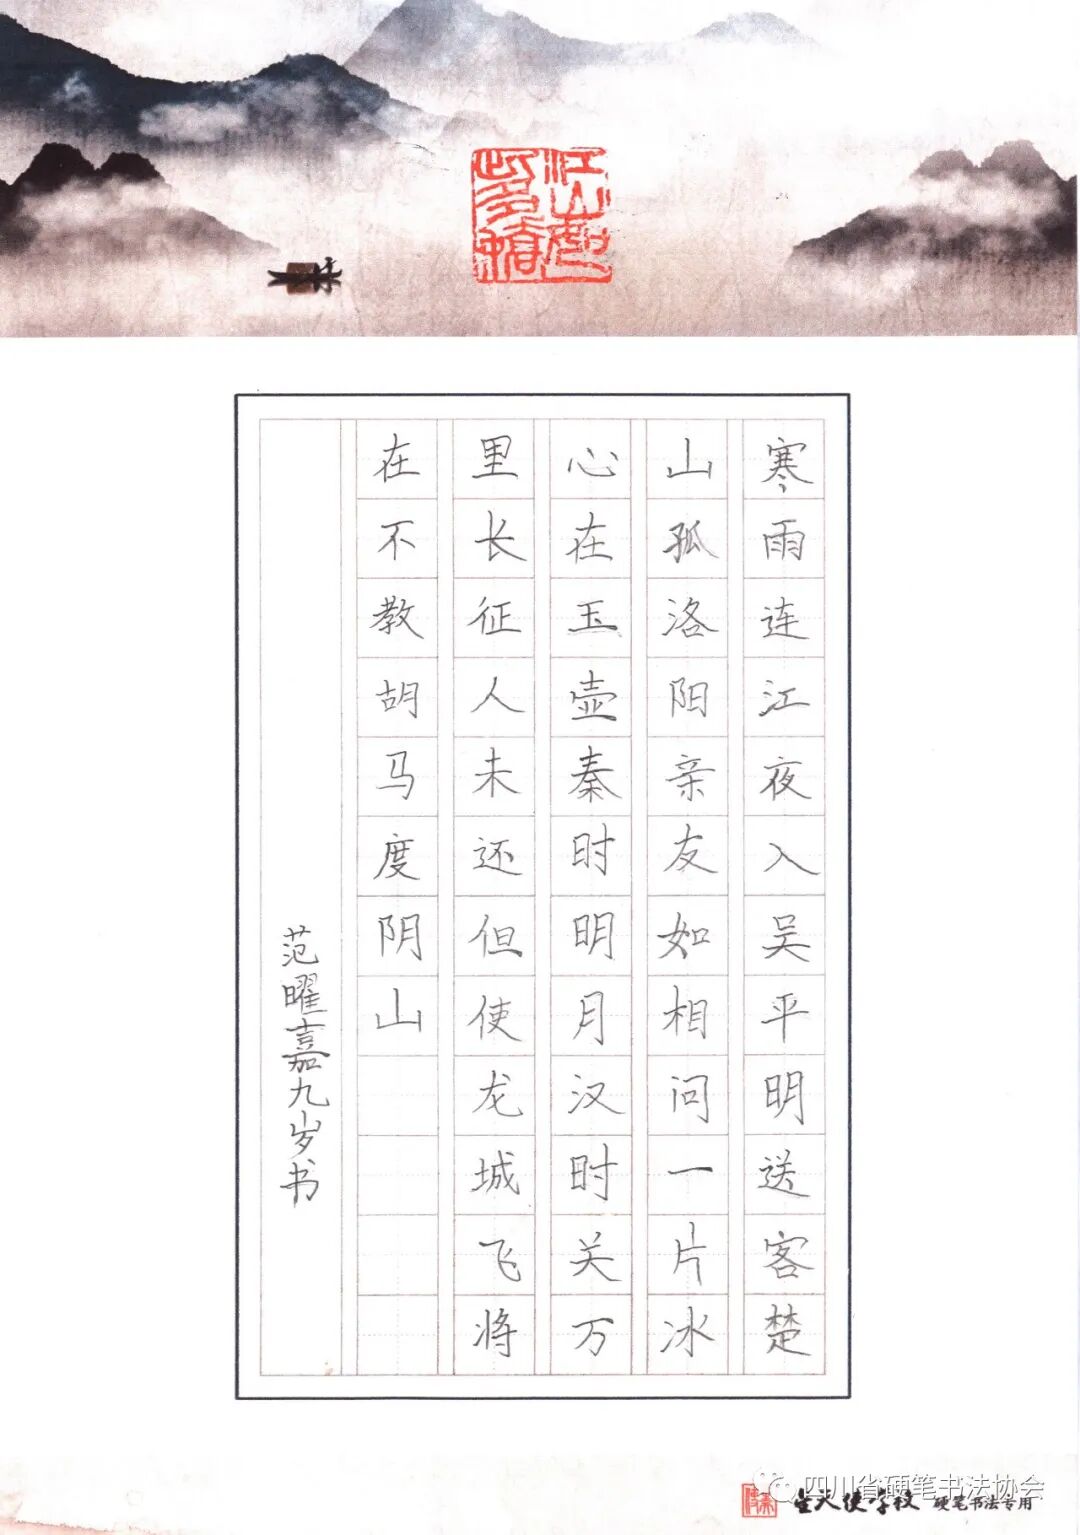 江山如此多娇
寒雨连江夜入吴平明送客楚
山孤洛阳亲友如相问一片冰
心在玉壶秦时明月汉时关万
里长征人未还但使龙城飞将
在不教胡马度阴山
范曜嘉九岁书
四川省硬笔书法协会
金天使学校 硬笔书法专用